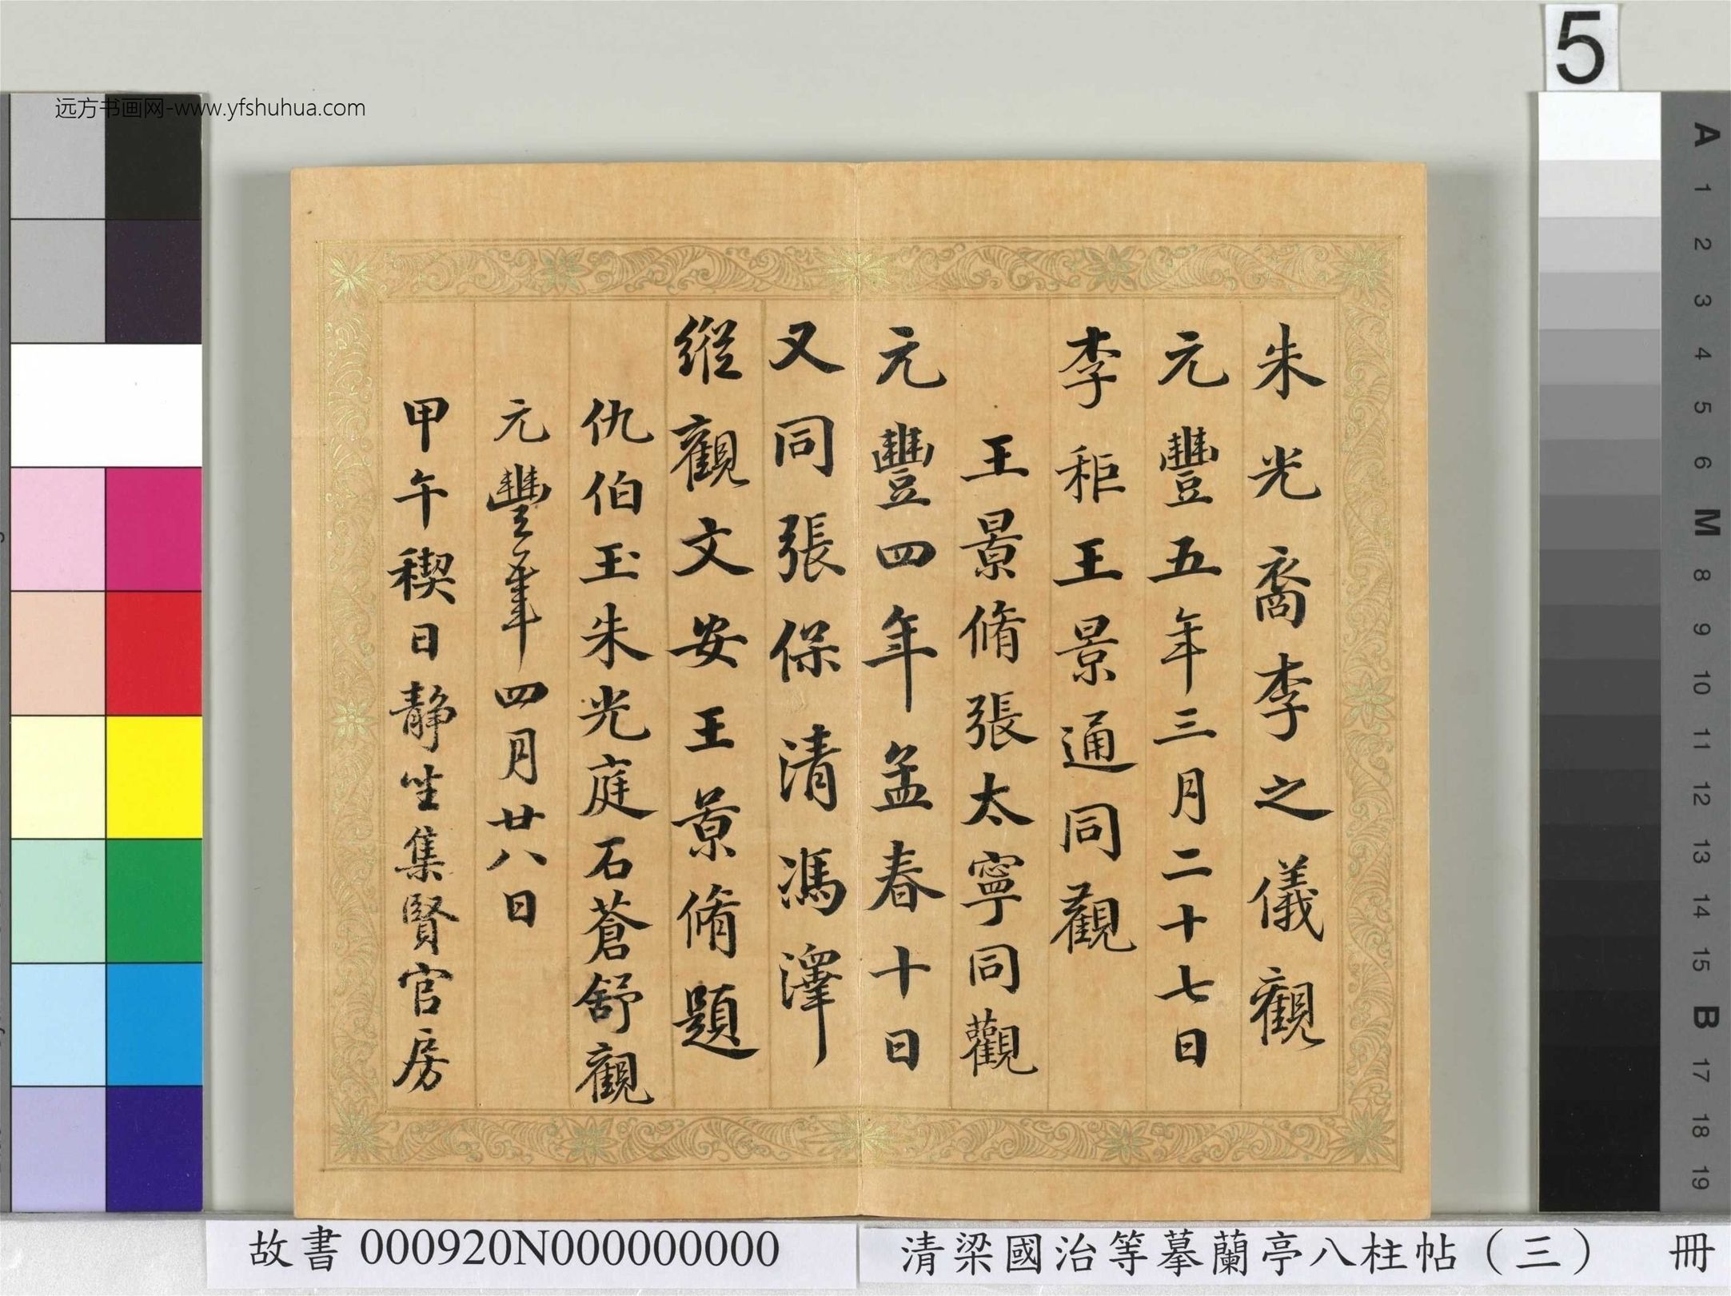 朱光裔李之儀觀
元豐五年三月二十七日
李秬王景通同觀
王景脩張太寧同觀
元豐四年孟春十日
又同張保清馮澤
縱觀文安王景脩題
仇伯玉朱光庭石蒼舒觀
元豐年四月廿八日
甲午稧日靜坐集賢官房
远方书画网-www.yfshuhua.com
5
A
1
2
3
4
5
6
M
8
9
10
11
12
13
14
15
B
17
18
19
故書 000920N000000000
清梁國治等摹蘭亭八柱帖（三） 冊